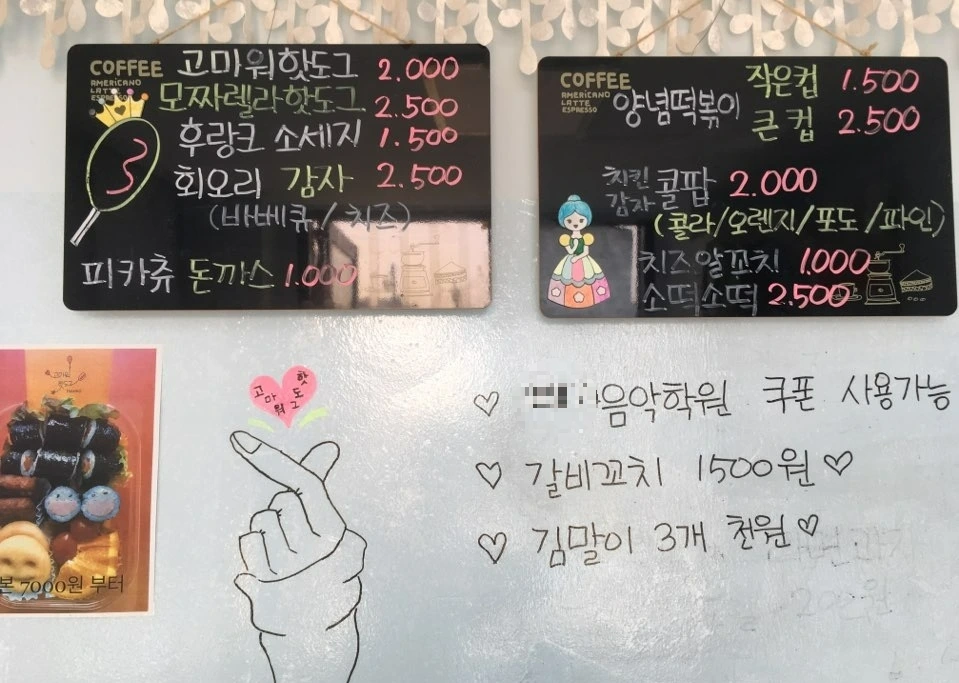 COFFEE
AMERICANO
LATTE
ESPRESSO
고마워핫도그 2.000
모짜렐라핫도그 2.500
후랑크 소세지 1.500
회오리 감자 2.500
(바베큐/치즈)
피카츄 돈까스 1.000
COFFEE
AMERICANO
LATTE
ESPRESSO
양념떡볶이 작은컵 1.500
큰컵 2.500
치킨
감자 콜팝 2.000
(콜라/오렌지/포도/파인)
치즈알꼬치 1.000
소떡소떡 2.500
고마워 핫도그
음악학원 쿠폰 사용가능
갈비꼬치 1500원
김말이 3개 천원
본 7000원 부터